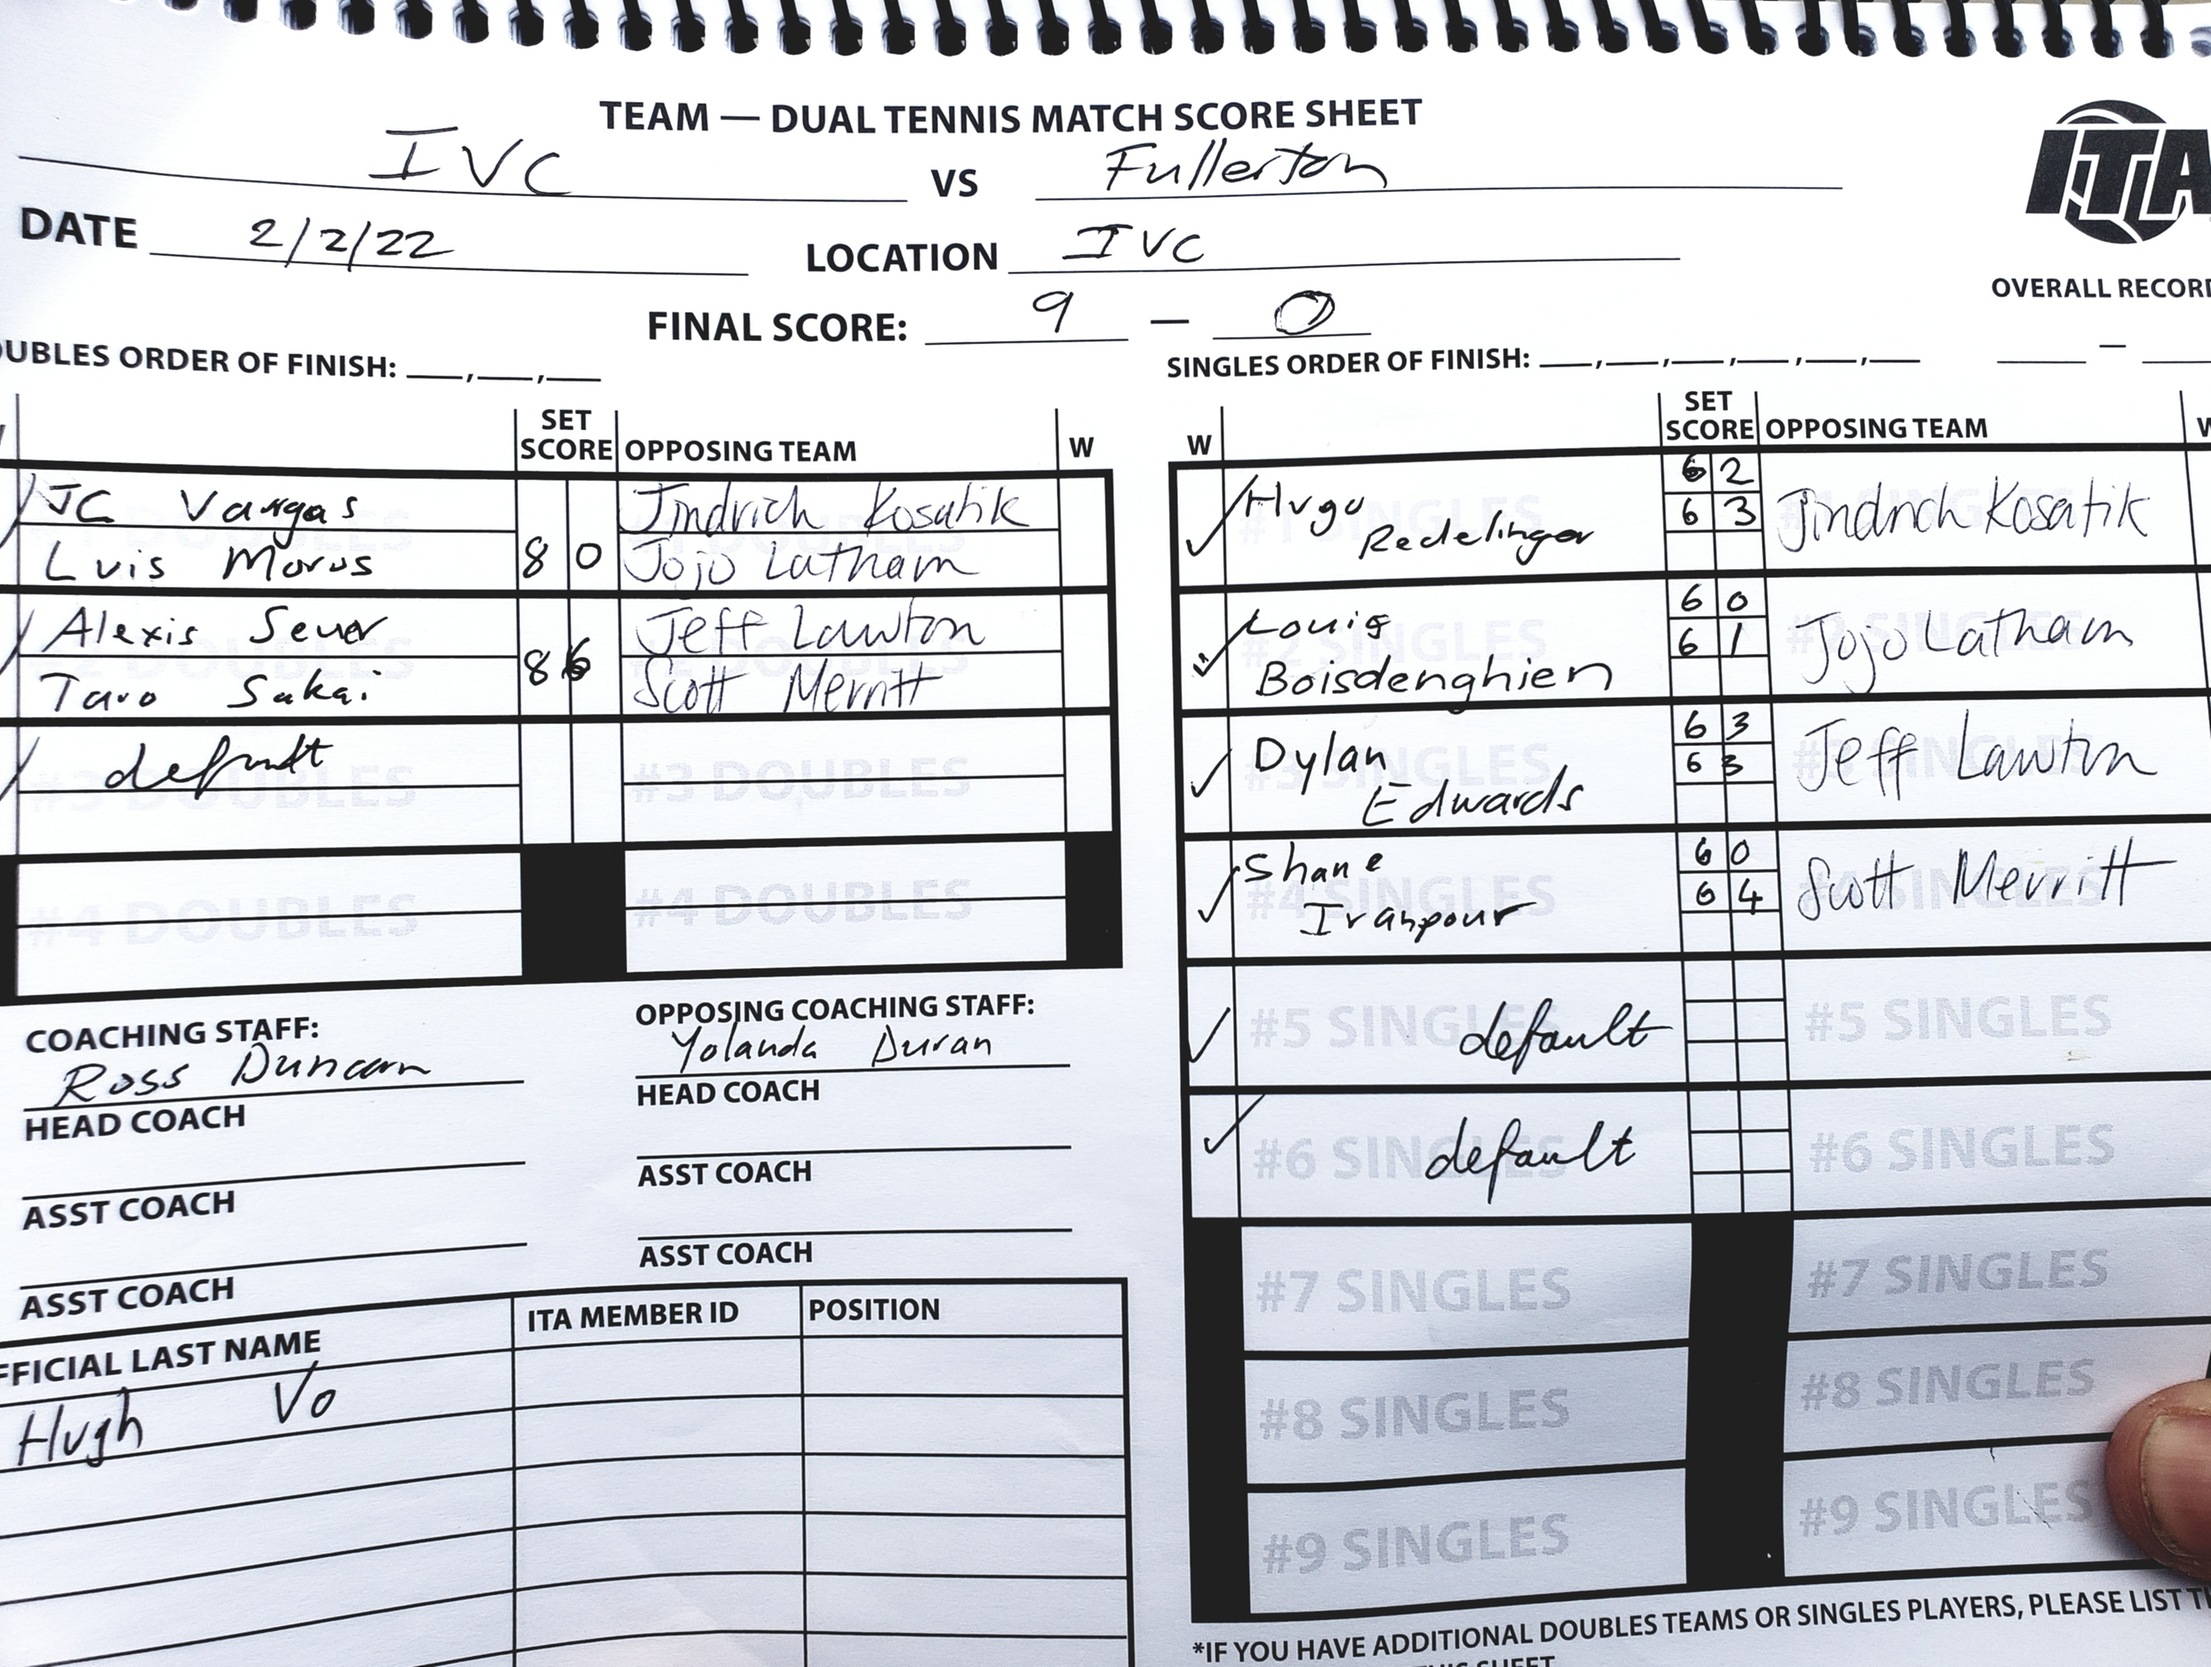 TEAM — DUAL TENNIS MATCH SCORE SHEET
IVC VS Fullerton
ITA
DATE 2/2/22 LOCATION IVC
OVERALL RECOR
FINAL SCORE: 9 — 0
OUBLES ORDER OF FINISH: ___,___,___
SINGLES ORDER OF FINISH: ___,___,___,___,___,___
___ — ___
SET SCORE OPPOSING TEAM W
JC Vargas Jindrich Kosatik
Luis Morus 8 0 Jojo Latham
Alexis Sever Jeff Lawton
Taro Sakai 8 6 Scott Merritt
default
#3 DOUBLES #3 DOUBLES
#4 DOUBLES #4 DOUBLES
W SET SCORE OPPOSING TEAM W
Hugo 6 2
Redelinger 6 3 Jindrich Kosatik
Louis 6 0
Boisdenghien 6 1 Jojo Latham
Dylan 6 3
Edwards 6 3 Jeff Lawton
Shane 6 0
Iranpour 6 4 Scott Merritt
#5 SINGLES default #5 SINGLES
#6 SINGLES default #6 SINGLES
#7 SINGLES #7 SINGLES
#8 SINGLES #8 SINGLES
#9 SINGLES #9 SINGLES
COACHING STAFF:
Ross Duncan
HEAD COACH
ASST COACH
ASST COACH
OPPOSING COACHING STAFF:
Yolanda Duran
HEAD COACH
ASST COACH
ASST COACH
FFICIAL LAST NAME ITA MEMBER ID POSITION
Hugh Vo
*IF YOU HAVE ADDITIONAL DOUBLES TEAMS OR SINGLES PLAYERS, PLEASE LIST T
THIS SHEET